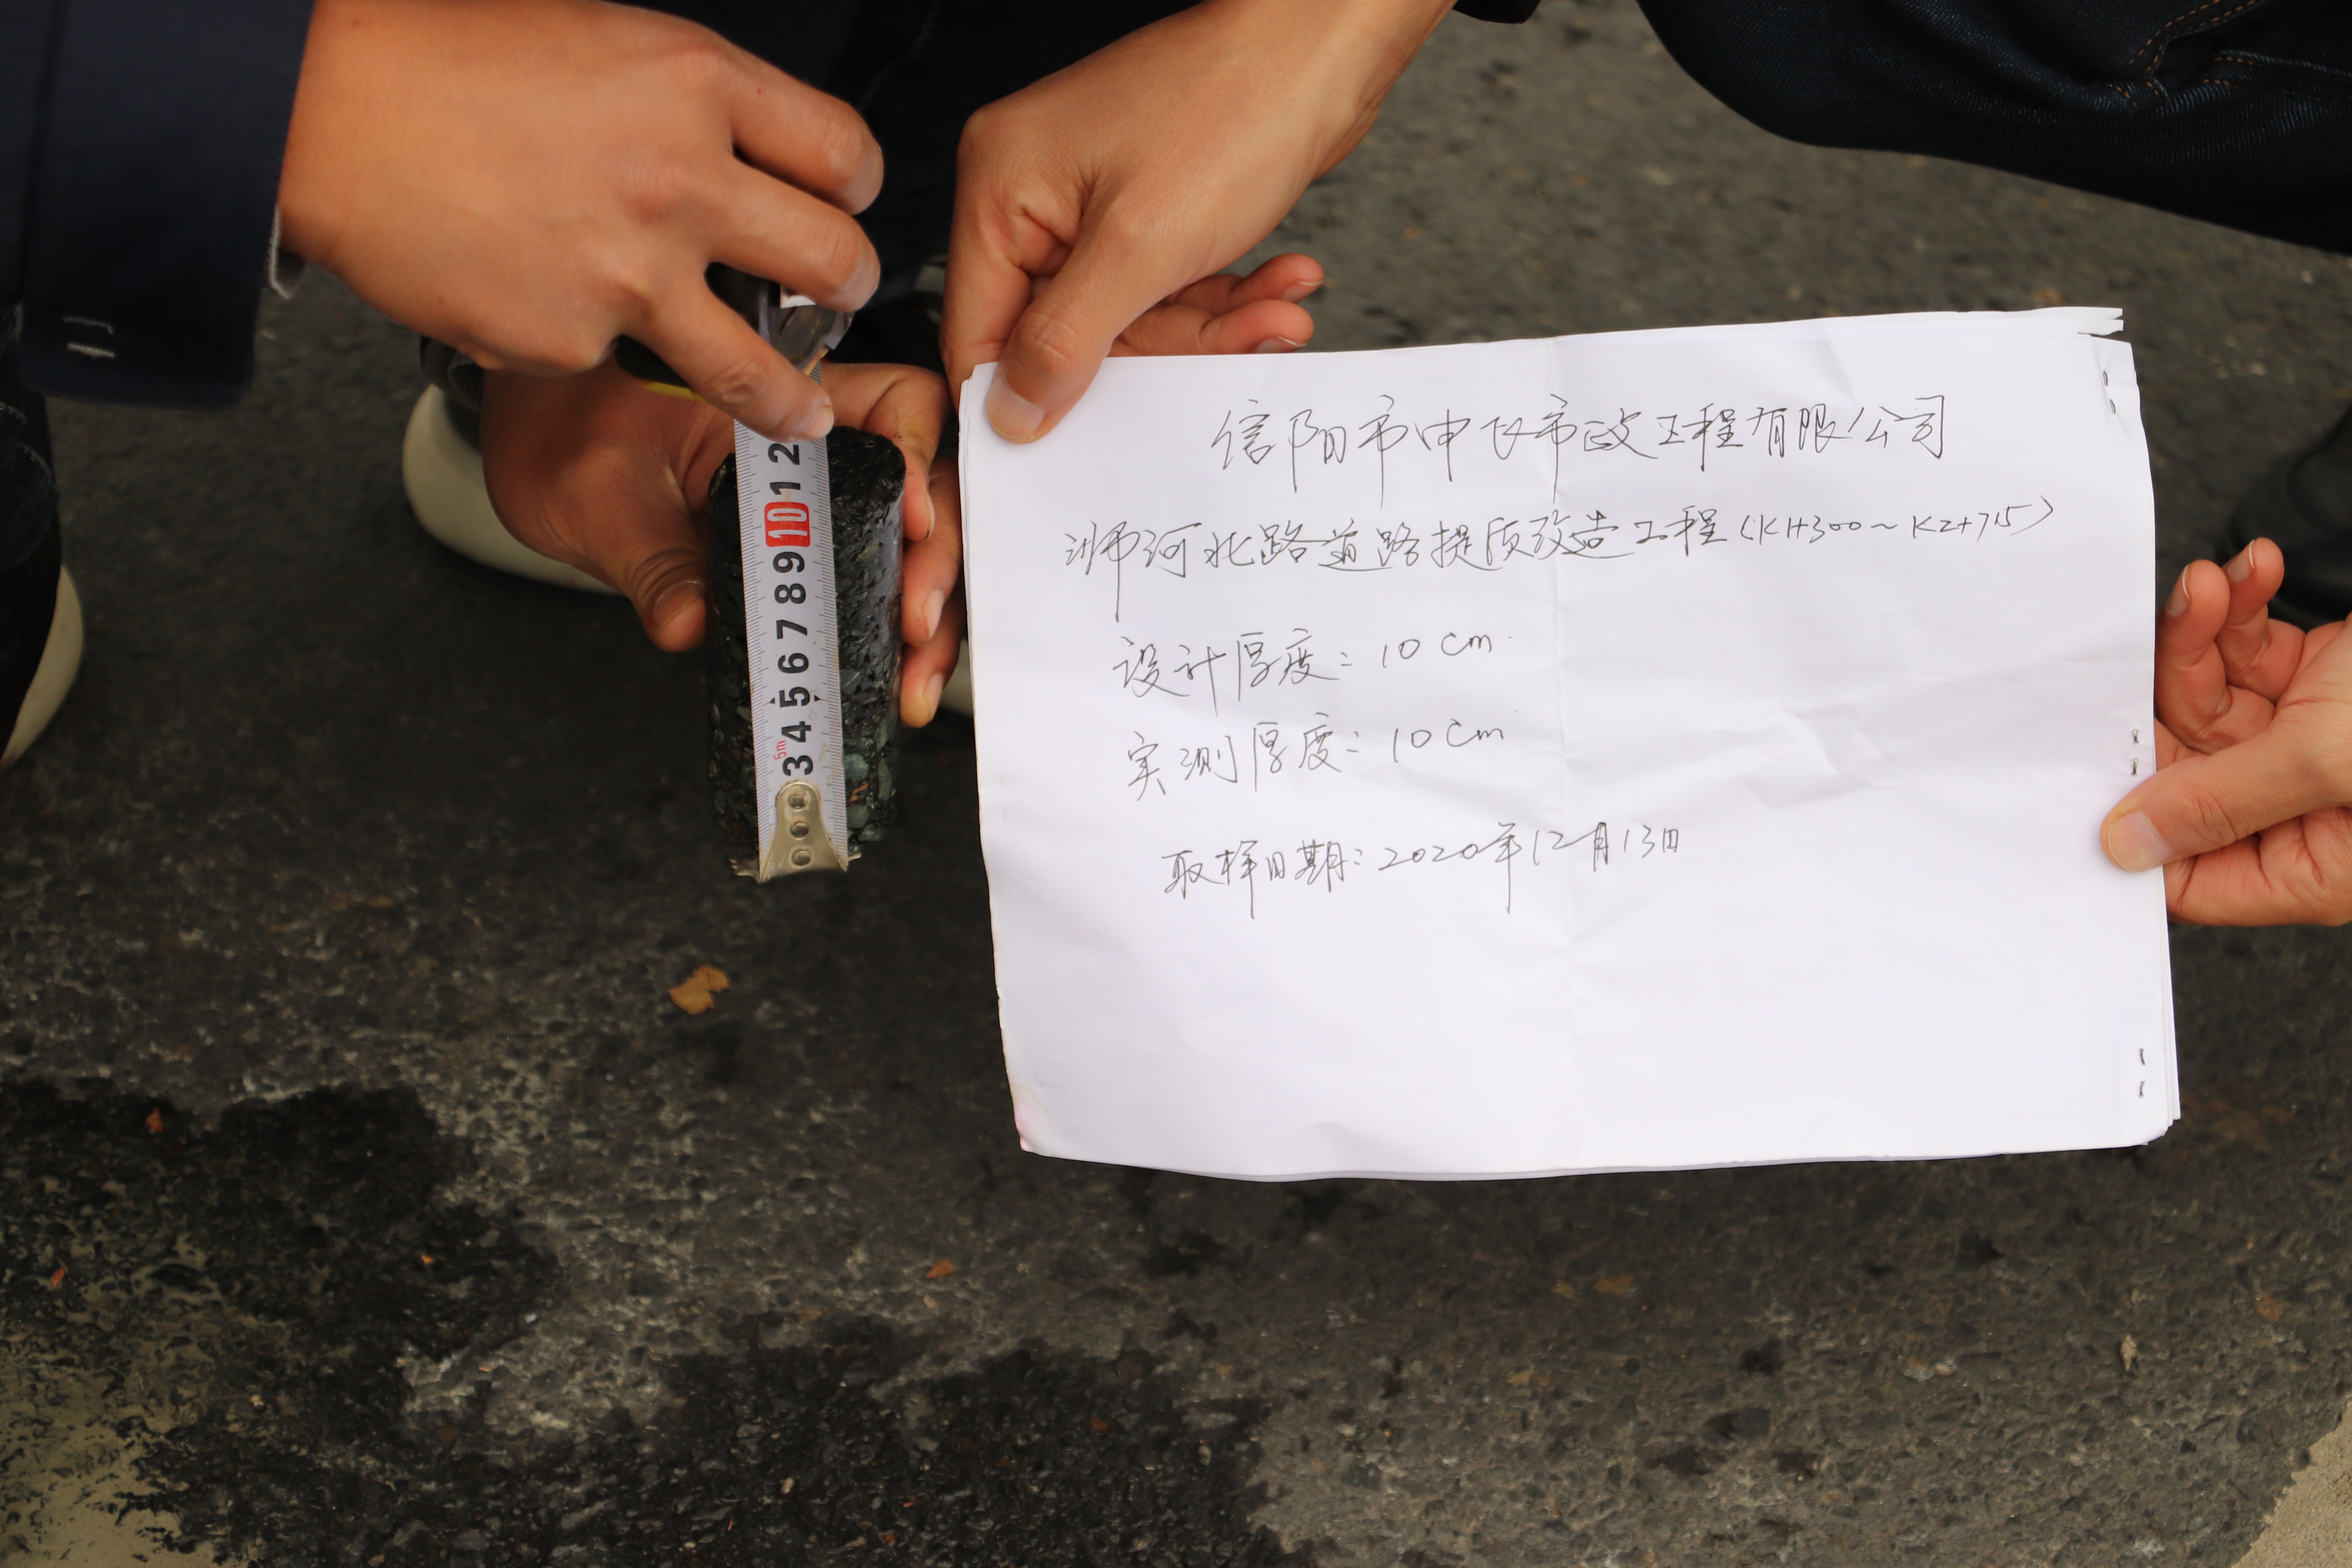 信阳市申飞市政工程有限公司
浉河北路道路提质改造工程(K1+300~K2+715)
设计厚度: 10cm
实测厚度: 10cm
取样日期: 2020年12月13日
5m
3 4 5 6 7 8 9 10 1 2